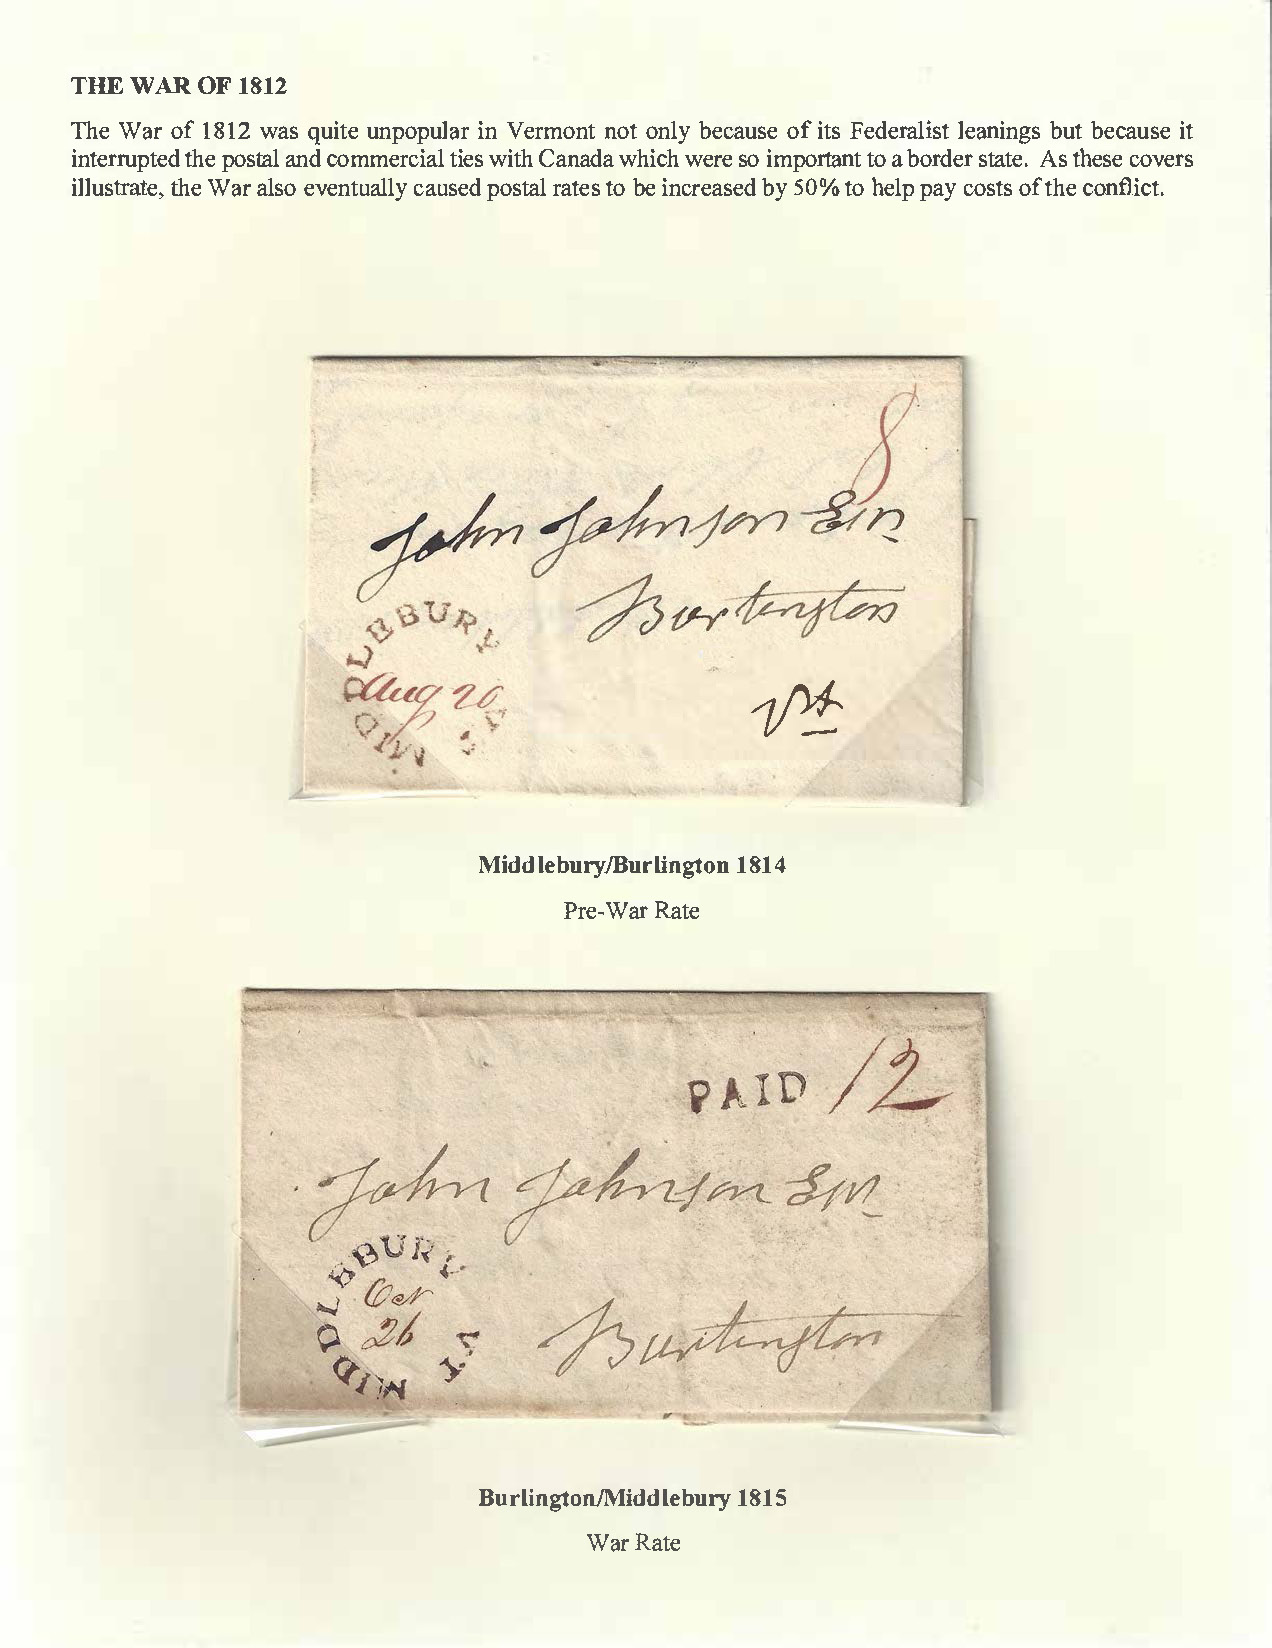 THE WAR OF 1812
The War of 1812 was quite unpopular in Vermont not only because of its Federalist leanings but because it
interrupted the postal and commercial ties with Canada which were so important to a border state. As these covers
illustrate, the War also eventually caused postal rates to be increased by 50% to help pay costs of the conflict.
8
John Johnson Esqr
Burlington
Vt
MIDDLEBURY VT
Aug 20
Middlebury/Burlington 1814
Pre-War Rate
PAID 12
John Johnson Esqr
MIDDLEBURY VT
Oct
26
Burlington
Burlington/Middlebury 1815
War Rate